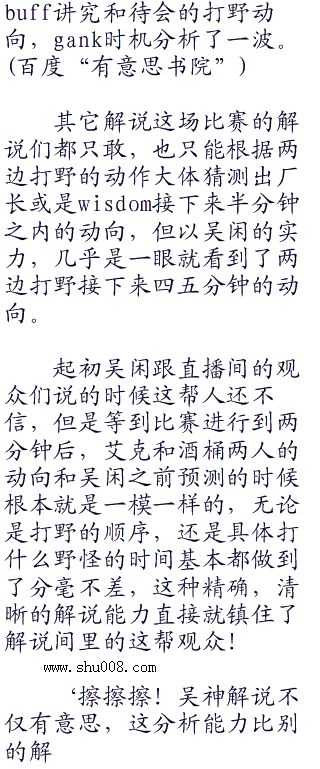 buff讲究和待会的打野动
向，gank时机分析了一波。
(百度“有意思书院”)
其它解说这场比赛的解
说们都只敢，也只能根据两
边打野的动作大体猜测出厂
长或是wisdom接下来半分钟
之内的动向，但以吴闲的实
力，几乎是一眼就看到了两
边打野接下来四五分钟的动
向。
起初吴闲跟直播间的观
众们说的时候这帮人还不
信，但是等到比赛进行到两
分钟后，艾克和酒桶两人的
动向和吴闲之前预测的时候
根本就是一模一样的，无论
是打野的顺序，还是具体打
什么野怪的时间基本都做到
了分毫不差，这种精确，清
晰的解说能力直接就镇住了
解说间里的这帮观众！
www.shu008.com
‘擦擦擦！吴神解说不
仅有意思，这分析能力比别
的解